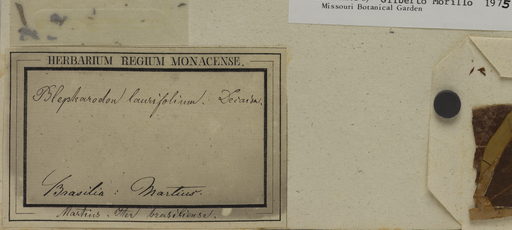 Gilberto Morillo 1975
Missouri Botanical Garden
HERBARIUM REGIUM MONACENSE.
Blepharodon laurifolium. Decaisn.
Brasilia: Martius.
Martius. Iter brasiliense.